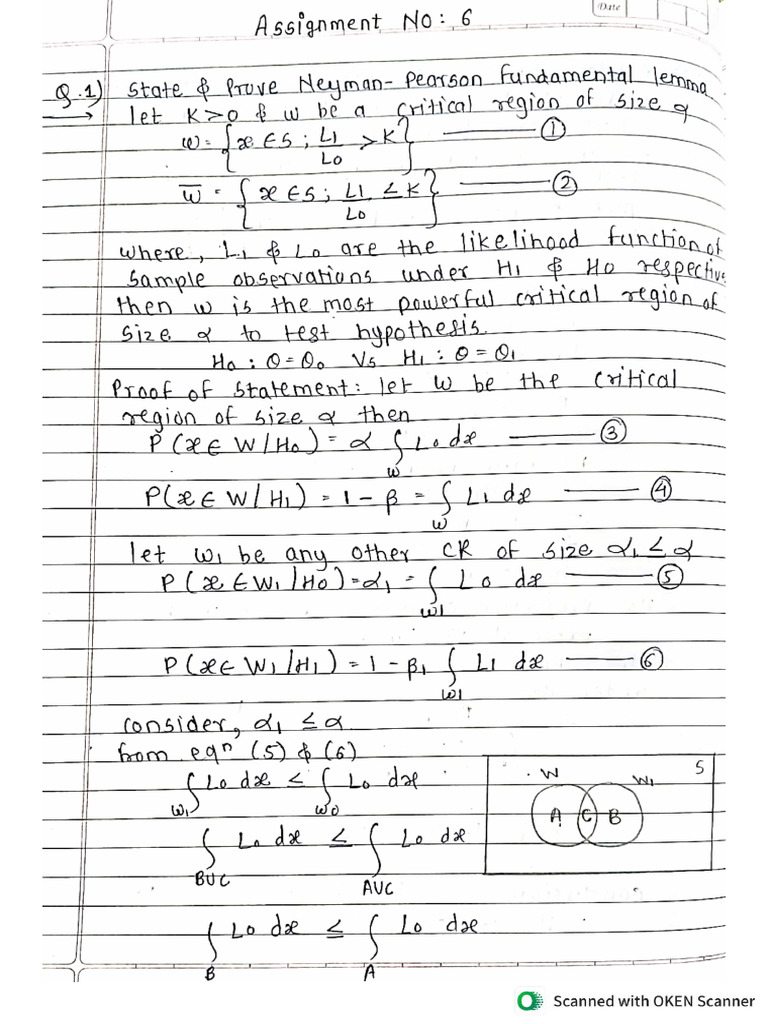 Date
Assignment No: 6
Q.1) State & Prove Neyman-Pearson Fundamental lemma
→ let K>0 & w be a critical region of size α
w = {x ∈ S ; L1/L0 > K} ——— ①
w̅ = {x ∈ S ; L1/L0 ≤ K} ——— ②
where, L1 & L0 are the likelihood function of
sample observations under H1 & H0 respective
then w is the most powerful critical region of
size α to test hypothesis.
H0 : θ = θ0 Vs H1 : θ = θ1
Proof of statement: let w be the critical
region of size α then
P(x ∈ W/H0) = α ∫w L0 dx ——— ③
P(x ∈ W/H1) = 1 - β = ∫w L1 dx ——— ④
let w1 be any other CR of size α1 ≤ α
P(x ∈ W1/H0) = α1 = ∫w1 L0 dx ——— ⑤
P(x ∈ W1/H1) = 1 - β1 ∫w1 L1 dx ——— ⑥
consider, α1 ≤ α
from eqn (5) & (6)
∫w1 L0 dx ≤ ∫w0 L0 dx
W W1 S
A C B
∫BUC L0 dx ≤ ∫AUC L0 dx
∫B L0 dx ≤ ∫A L0 dx
Scanned with OKEN Scanner